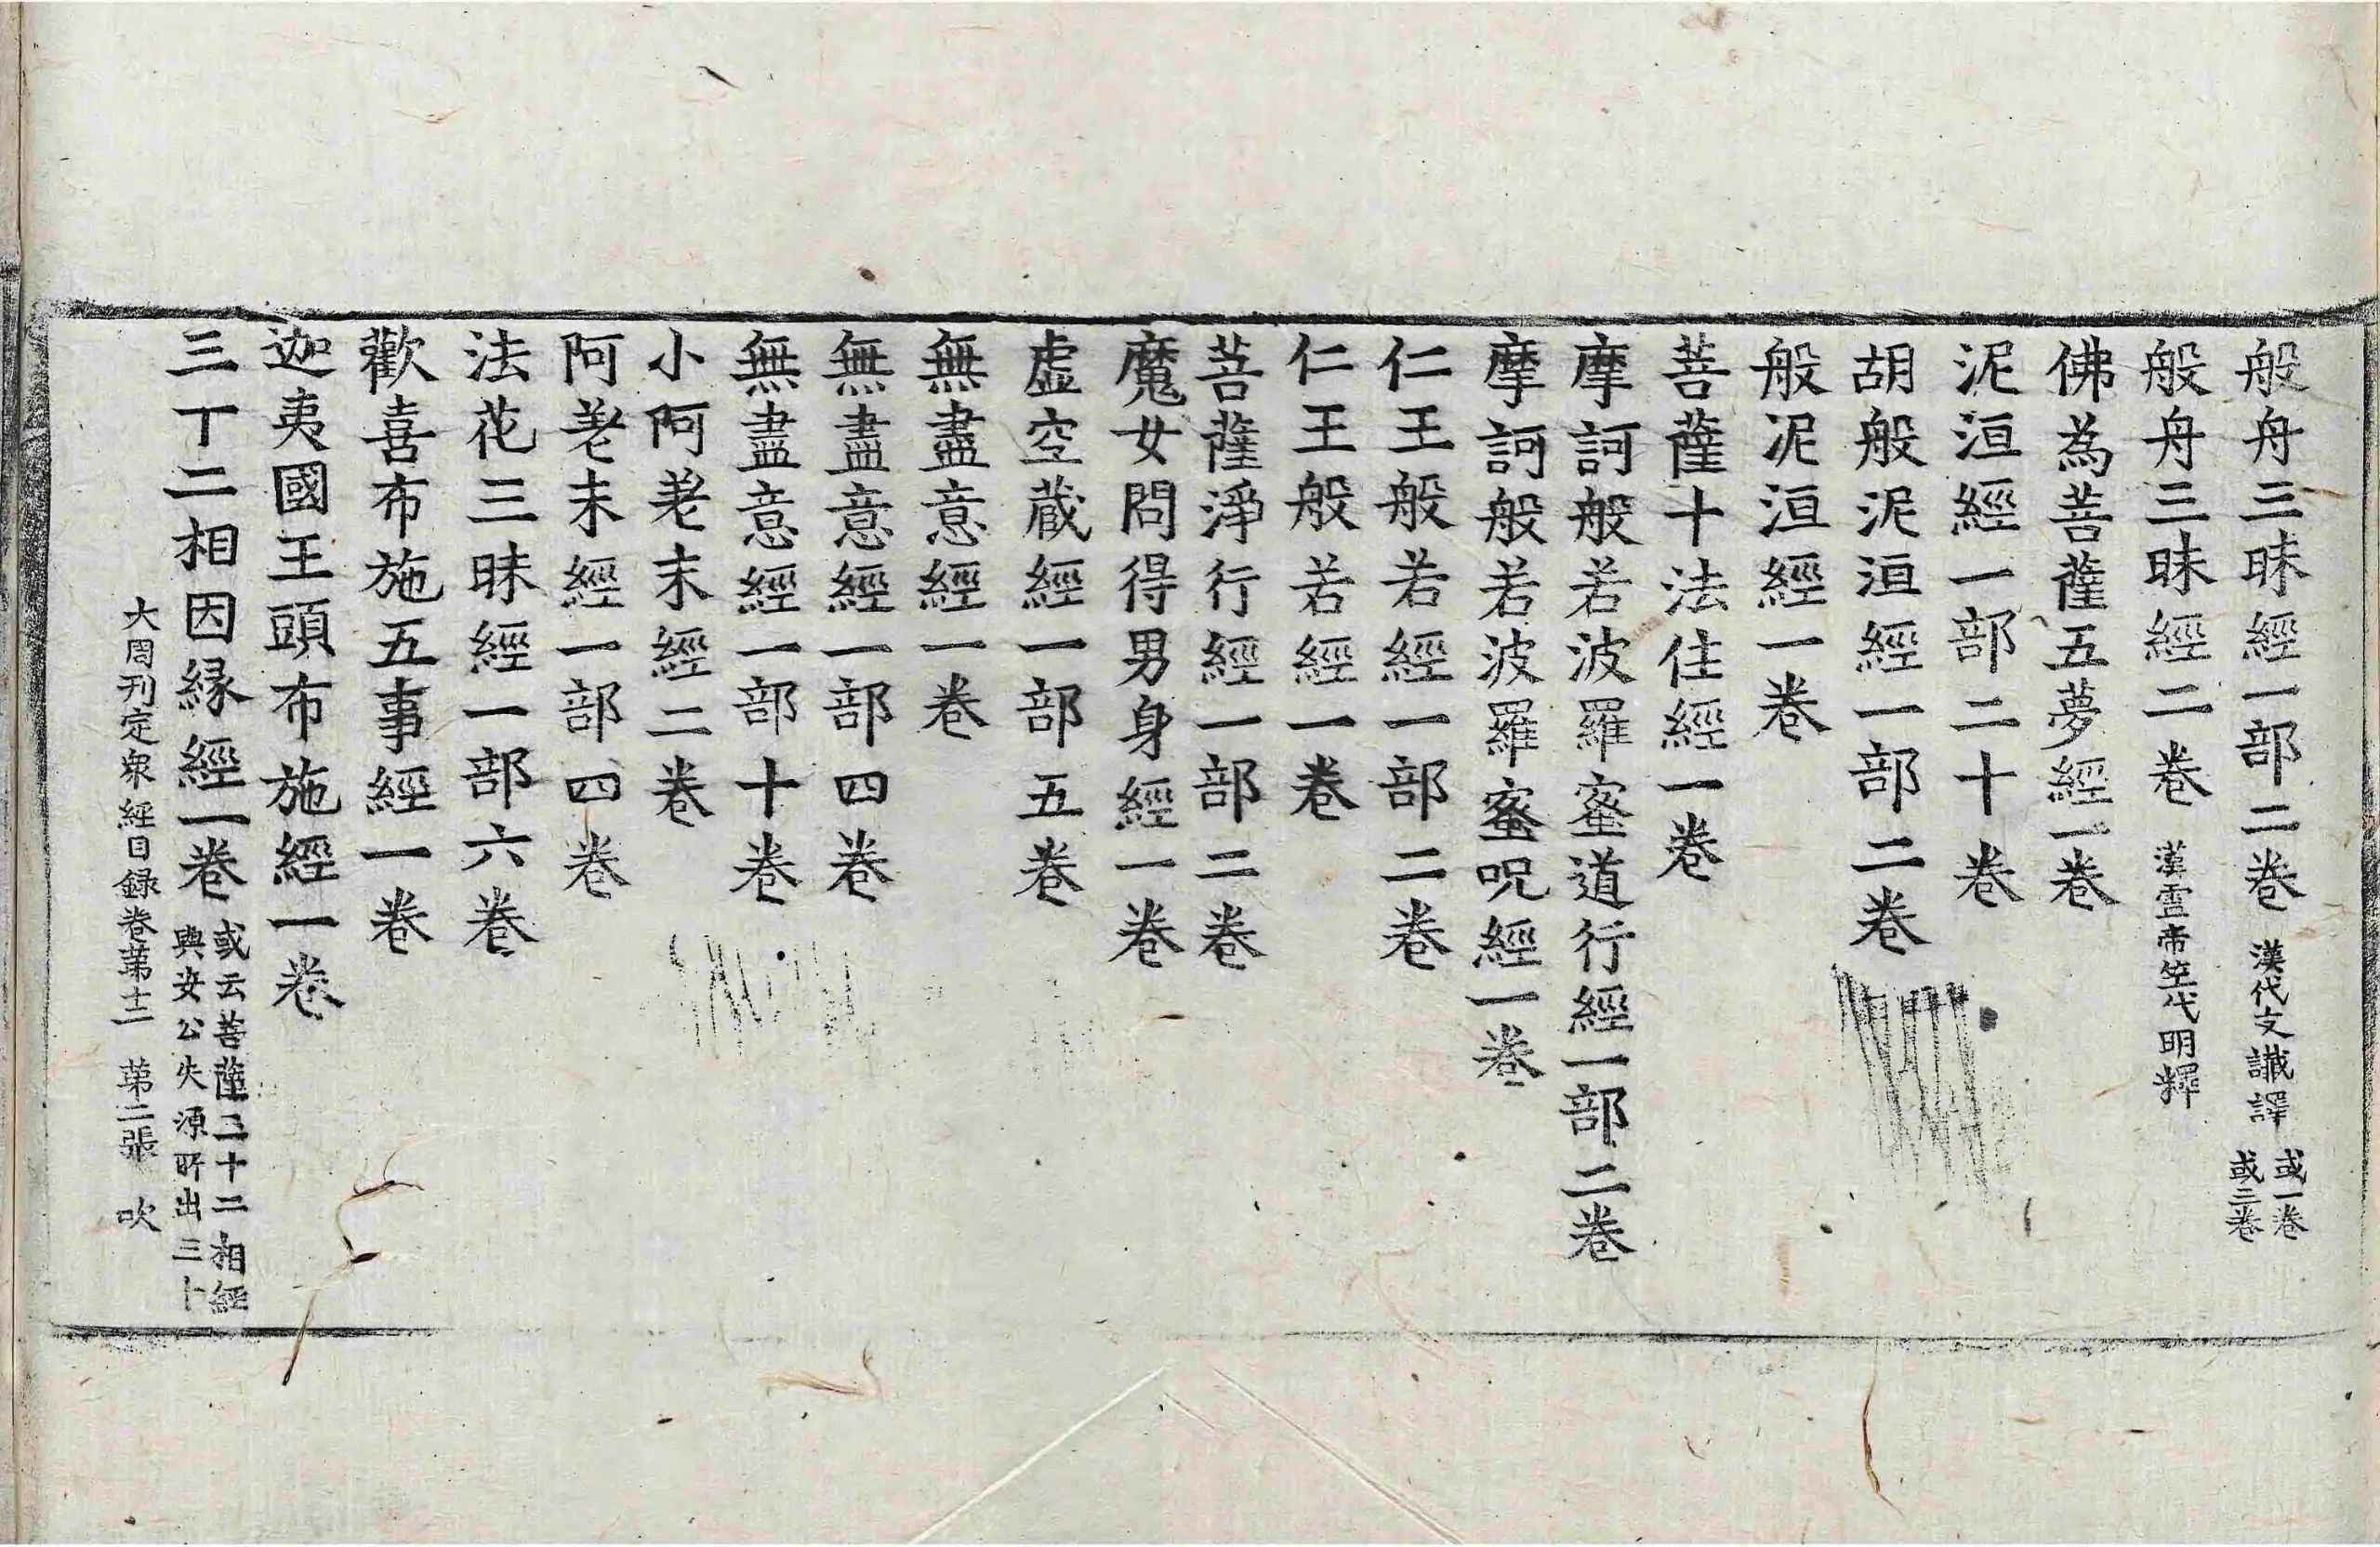 般舟三昧經一部二卷 漢代支讖譯 或一卷或三卷
般舟三昧經二卷 漢靈帝竺代明譯
佛為菩薩五夢經一卷
泥洹經一部二十卷
胡般泥洹經一部二卷
般泥洹經一卷
菩薩十法住經一卷
摩訶般若波羅蜜道行經一部二卷
摩訶般若波羅蜜呪經一卷
仁王般若經一部二卷
仁王般若經一卷
菩薩淨行經一部二卷
魔女問得男身經一卷
虛空蔵經一部五卷
無盡意經一卷
無盡意經一部四卷
無盡意經一部十卷
小阿差末經二卷
阿差末經一部四卷
法花三昧經一部六卷
歡喜布施五事經一卷
迦夷國王頭布施經一卷
三丁二相因縁經一卷 或云菩薩三十二相經與安公失源所出三十
大周刊定衆經目録卷苐十二 苐二張 吹